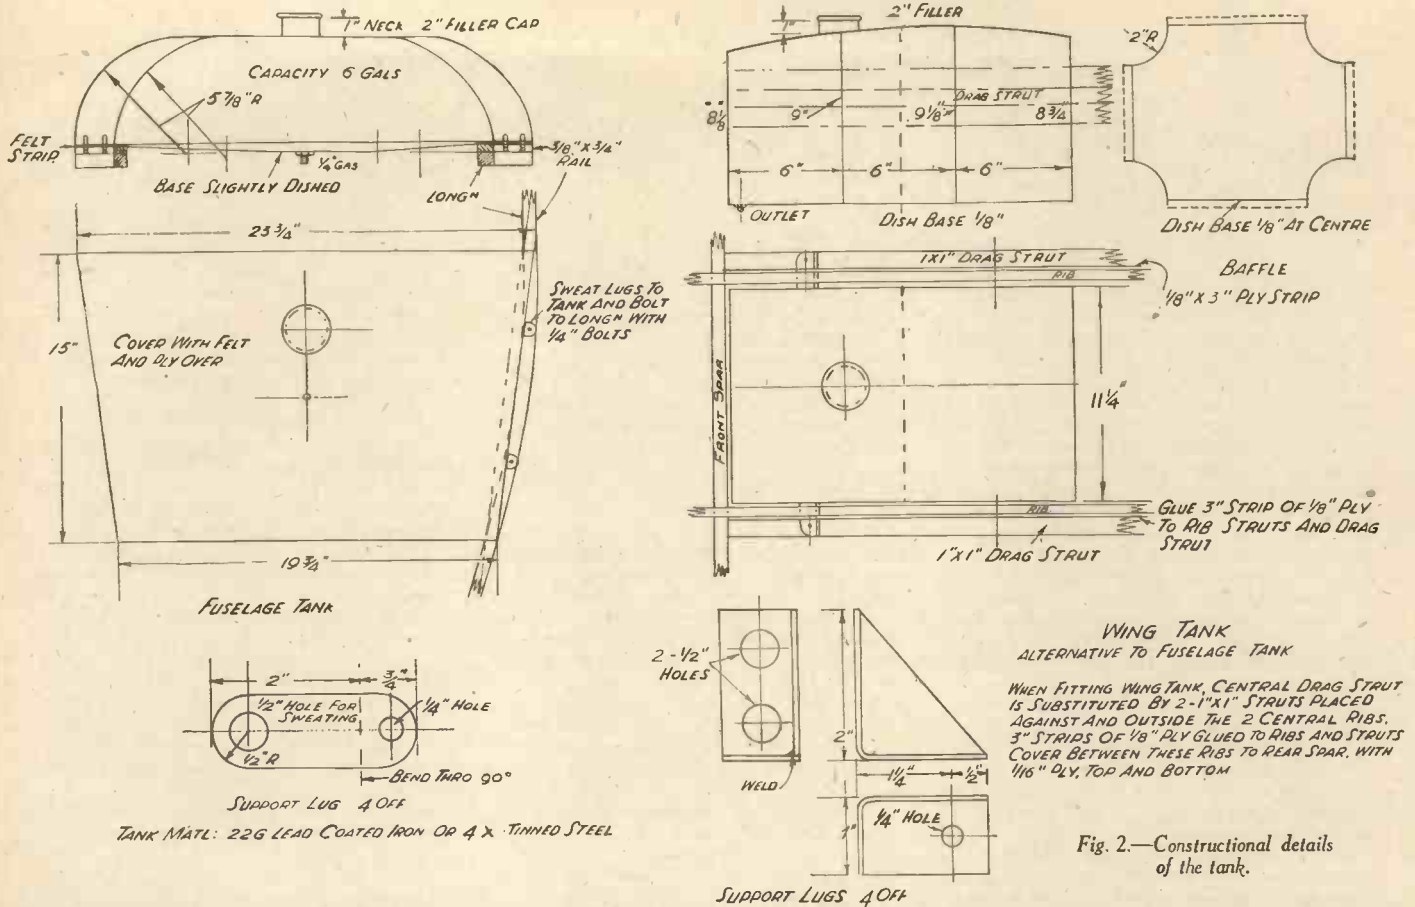 1" NECK 2" FILLER CAP
CAPACITY 6 GALS
5 7/8" R
FELT
STRIP
1/4" GAS
3/8" X 3/4"
RAIL
BASE SLIGHTLY DISHED
LONGN
23 3/4"
15"
COVER WITH FELT
AND PLY OVER
SWEAT LUGS TO
TANK AND BOLT
TO LONGN WITH
1/4" BOLTS
19 3/4"
FUSELAGE TANK
2"
3/4"
1/2" HOLE FOR
SWEATING
1/4" HOLE
1/2" R
BEND THRO 90°
SUPPORT LUG 4 OFF
TANK MATL: 22G LEAD COATED IRON OR 4 X TINNED STEEL
2" FILLER
1"
DRAG STRUT
8 1/8"
9"
9 1/8"
8 3/4"
6"
6"
6"
OUTLET
DISH BASE 1/8"
2" R
DISH BASE 1/8" AT CENTRE
BAFFLE
1/8" X 3" PLY STRIP
1X1" DRAG STRUT
RIB
FRONT SPAR
11 1/4"
RIB
1"X1" DRAG STRUT
GLUE 3" STRIP OF 1/8" PLY
TO RIB STRUTS AND DRAG
STRUT
2 - 1/2"
HOLES
WELD
2"
1 1/4"
1/2"
1/4" HOLE
1"
SUPPORT LUGS 4 OFF
WING TANK
ALTERNATIVE TO FUSELAGE TANK
WHEN FITTING WING TANK, CENTRAL DRAG STRUT
IS SUBSTITUTED BY 2-1"X1" STRUTS PLACED
AGAINST AND OUTSIDE THE 2 CENTRAL RIBS.
3" STRIPS OF 1/8" PLY GLUED TO RIBS AND STRUTS
COVER BETWEEN THESE RIBS TO REAR SPAR, WITH
1/16" PLY, TOP AND BOTTOM
Fig. 2.—Constructional details
of the tank.